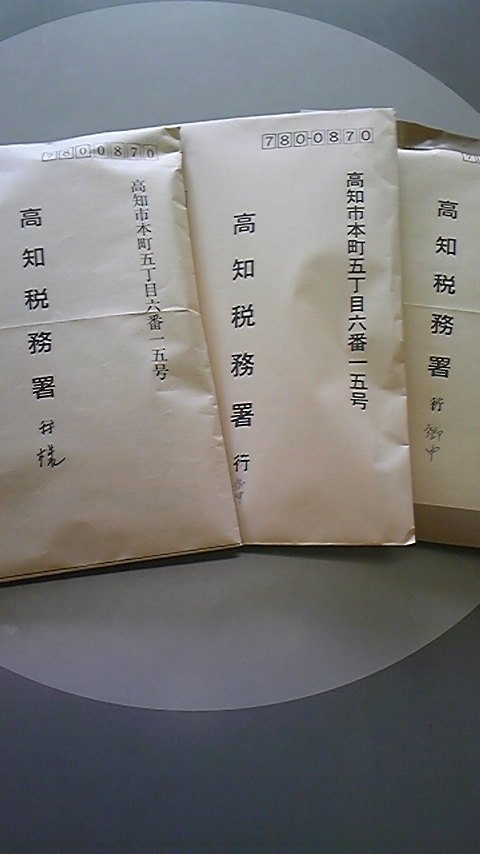 780-0870
高知市本町五丁目六番一五号
高知税務署 行
様
780-0870
高知市本町五丁目六番一五号
高知税務署 行
御中
7
高知税務署 行
御中